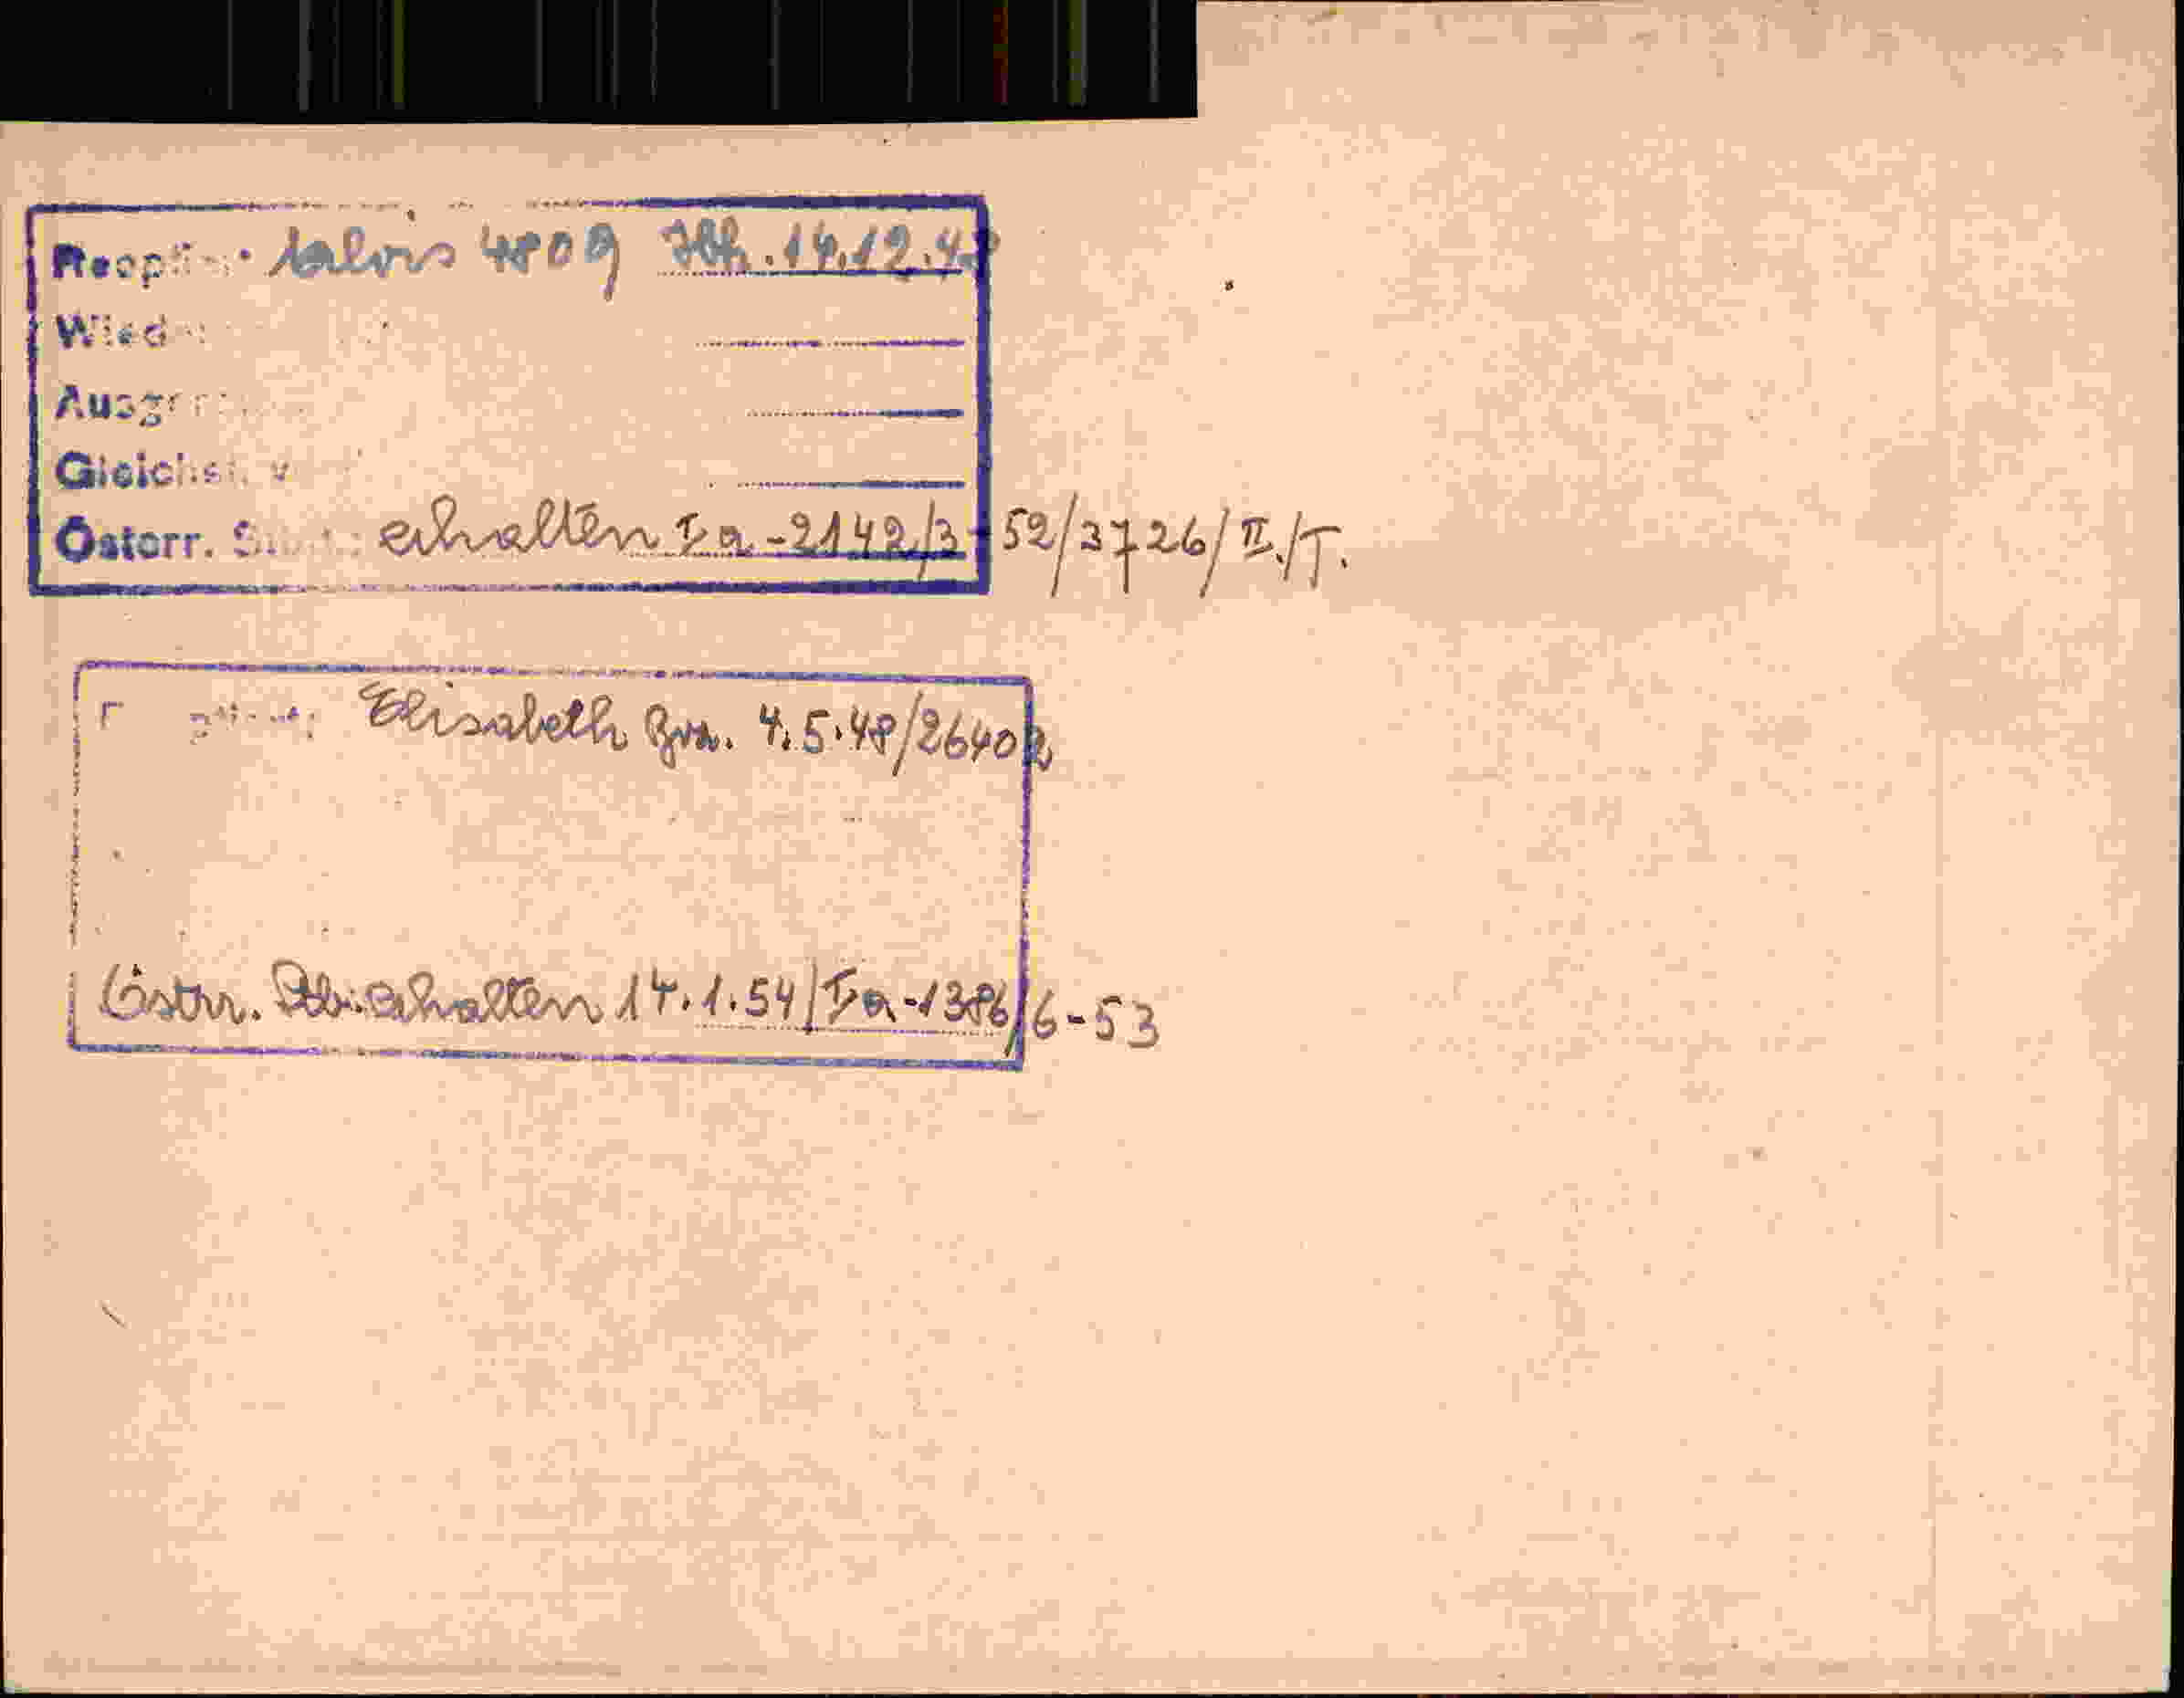 Alois 4809 14.12.4
Wied
Ausgr
Gleichst. v
Österr. S. erhalten Fa-2142/3-52/3726/II./T.
Elisabeth 4.5.48/2640
Östrr. erhalten 14.1.54/Fa-1386/6-53